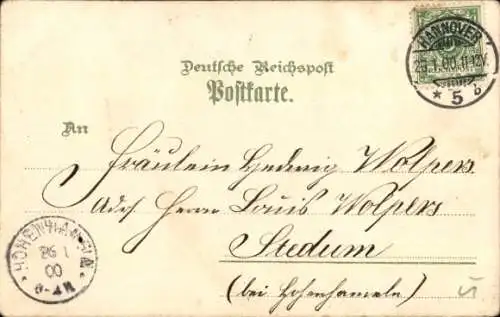 HANNOVER
25.1.00.11-12V.
* 5 b
Deutsche Reichspost
Postkarte.
An
Fräulein Hedwig Wolpers
Adr. Herrn Louis Wolpers
Stedum
(bei Hohenhameln)
HOHENHAMELN
26 1
00